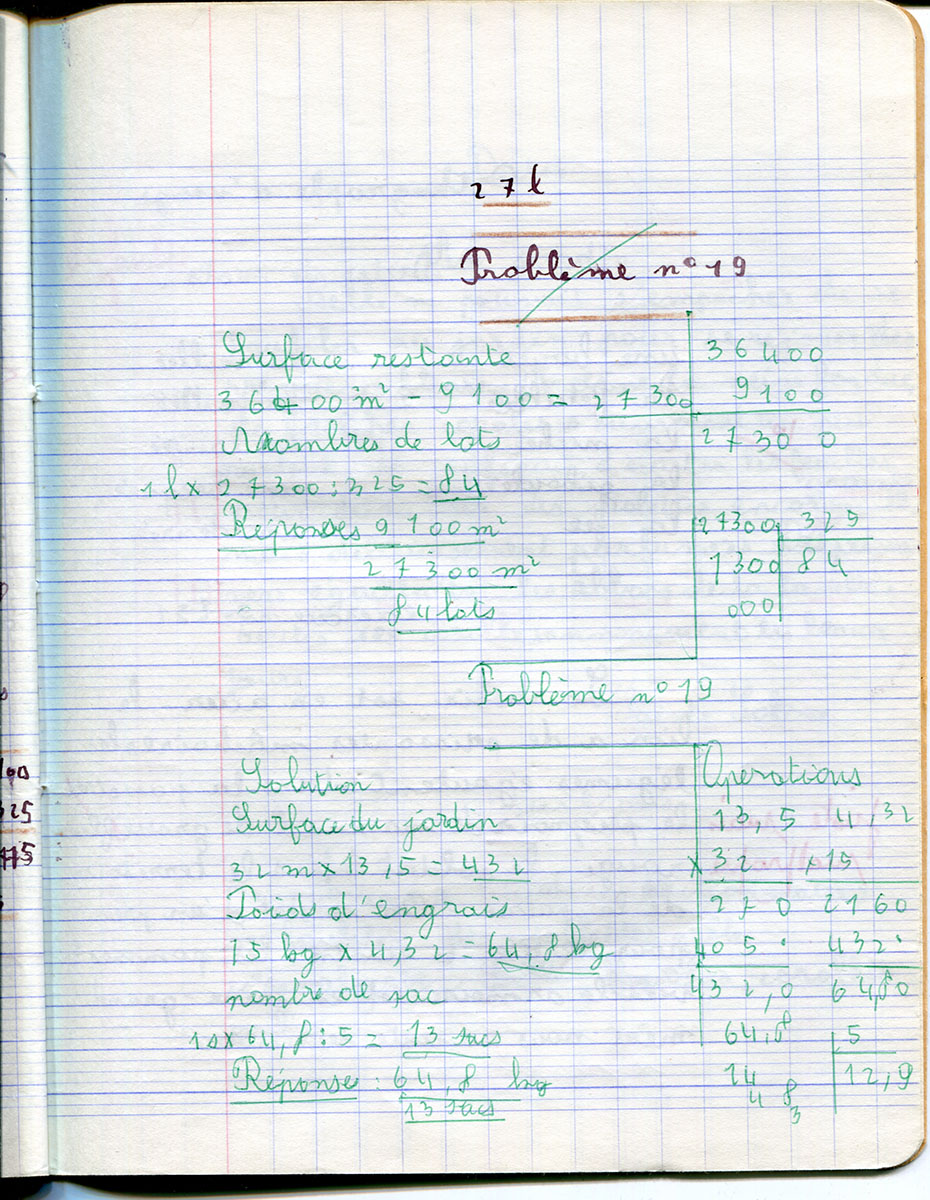 27 l
Problème n° 19
Surface restante
36400 m² - 9100 = 27300
Nombres de lots
1 l x 27300 : 325 = 84
Réponses 9100 m²
27300 m²
84 lots
36400
9100
27300
27300 325
1300 84
000
Problème n° 19
Solution
Surface du jardin
32 m x 13,5 = 432
Poids d'engrais
15 kg x 4,32 = 64,8 kg
nombre de sac
1s x 64,8 : 5 = 13 sacs
Réponse : 64,8 kg
13 sacs
Operations
13,5 4,32
x 32 x 15
270 2160
405. 432.
432,0 64,80
64,8 5
14 12,9
48
3
00
325